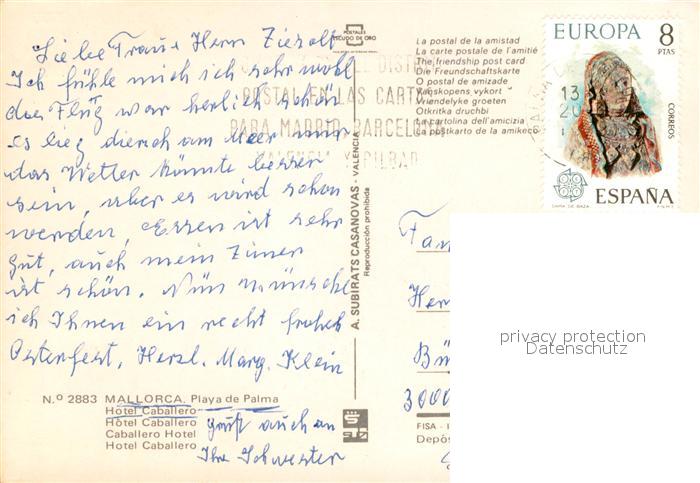 Liebe Frau u Herr Zierolt
Ich fühle mich ich sehr wohl
das Flüg war herlich schön
es lieg direch am Meer nur
das Wetter könnte besser
sein, aber es wird schon
werden, Essen ist sehr
gut, auch mein Zimer
ist schön. Nün wünsche
ich Ihnen ein recht frohes
Osterfest, Herzl. Marg. Klein
N.º 2883 MALLORCA. Playa de Palma
Hotel Caballero
Hotel Caballero
Caballero Hotel
Hotel Caballero
grüß auch an
Ihre Schwester
POSTALES
ESCUDO DE ORO
A. SUBIRATS CASANOVAS - VALENCIA
Reproducción prohibida
La postal de la amistad
La carte postale de l'amitié
The friendship post card
Die Freundschaftskarte
O postal de amizade
Vänskopens vykort
Vriendelyke groeten
Otkritka druchbi
La cartolina dell'amicizia
La postkarto de la amikeco
DIST
POSTAL EN LAS CARTAS
PARA MADRID BARCELONA
VALENCIA Y BILBAO
13
EUROPA 8
PTAS
CORREOS
ESPAÑA
DAMA DE BAZA
Fam
Her
Bü
3000
FISA - I
Depós
privacy protection
Datenschutz